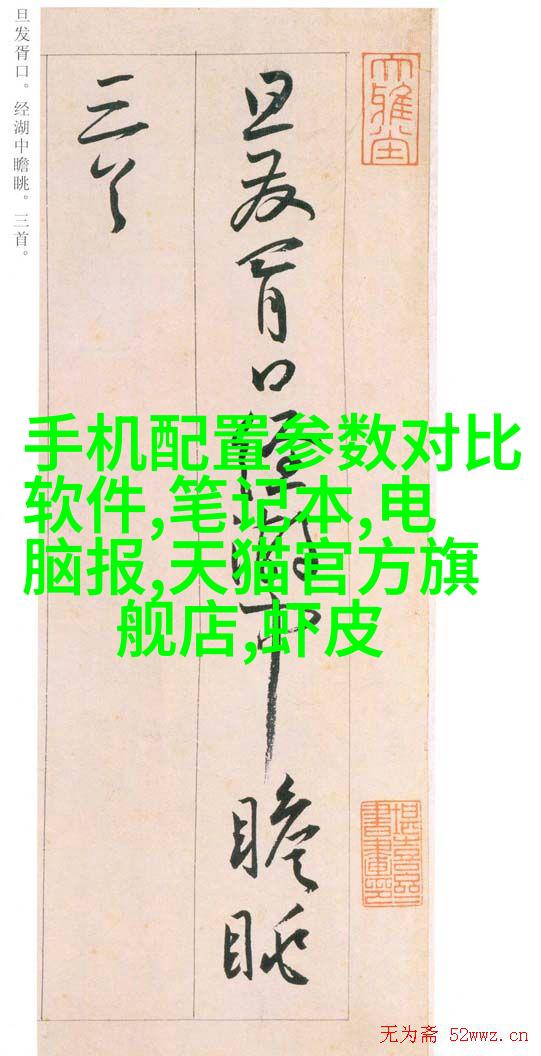 旦发胥口。经湖中瞻眺。三首。
旦发胥口经湖中瞻眺
三首
手机配置参数对比
软件,笔记本,电
脑报,天猫官方旗
舰店,虾皮
堪喜齋
書畫印
无为斋 52wwz.cn